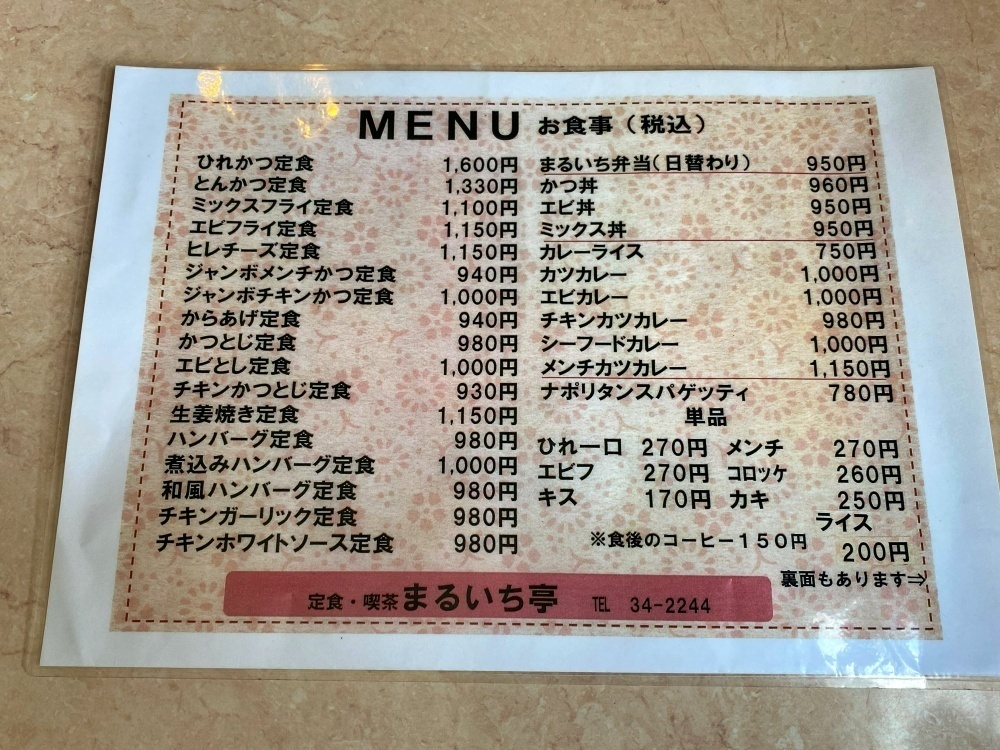 MENU お食事（税込）
ひれかつ定食 1,600円
とんかつ定食 1,330円
ミックスフライ定食 1,100円
エビフライ定食 1,150円
ヒレチーズ定食 1,150円
ジャンボメンチかつ定食 940円
ジャンボチキンかつ定食 1,000円
からあげ定食 940円
かつとじ定食 980円
エビとし定食 1,000円
チキンかつとじ定食 930円
生姜焼き定食 1,150円
ハンバーグ定食 980円
煮込みハンバーグ定食 1,000円
和風ハンバーグ定食 980円
チキンガーリック定食 980円
チキンホワイトソース定食 980円
まるいち弁当（日替わり） 950円
かつ丼 960円
エビ丼 950円
ミックス丼 950円
カレーライス 750円
カツカレー 1,000円
エビカレー 1,000円
チキンカツカレー 980円
シーフードカレー 1,000円
メンチカツカレー 1,150円
ナポリタンスパゲッティ 780円
単品
ひれ一口 270円 メンチ 270円
エビフ 270円 コロッケ 260円
キス 170円 カキ 250円
ライス
※食後のコーヒー１５０円 200円
裏面もあります⇒
定食・喫茶まるいち亭 ℡ 34-2244